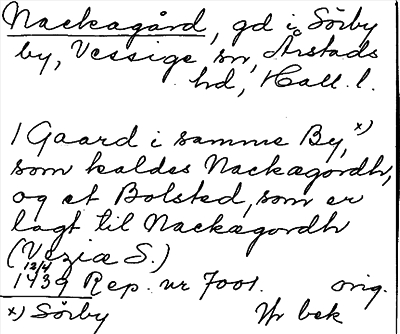 Nackagård, gd i Sörby
by, Vessige sn, Årstads
hd, Hall. l.
1 Gaard i samme By,x)
som kaldes Nackægordh,
og et Bolsted, som er
lagt til Nackægordh
(Veziæ S.)
12/4
1439 Rep. nr 7001. orig.
x) Sörby